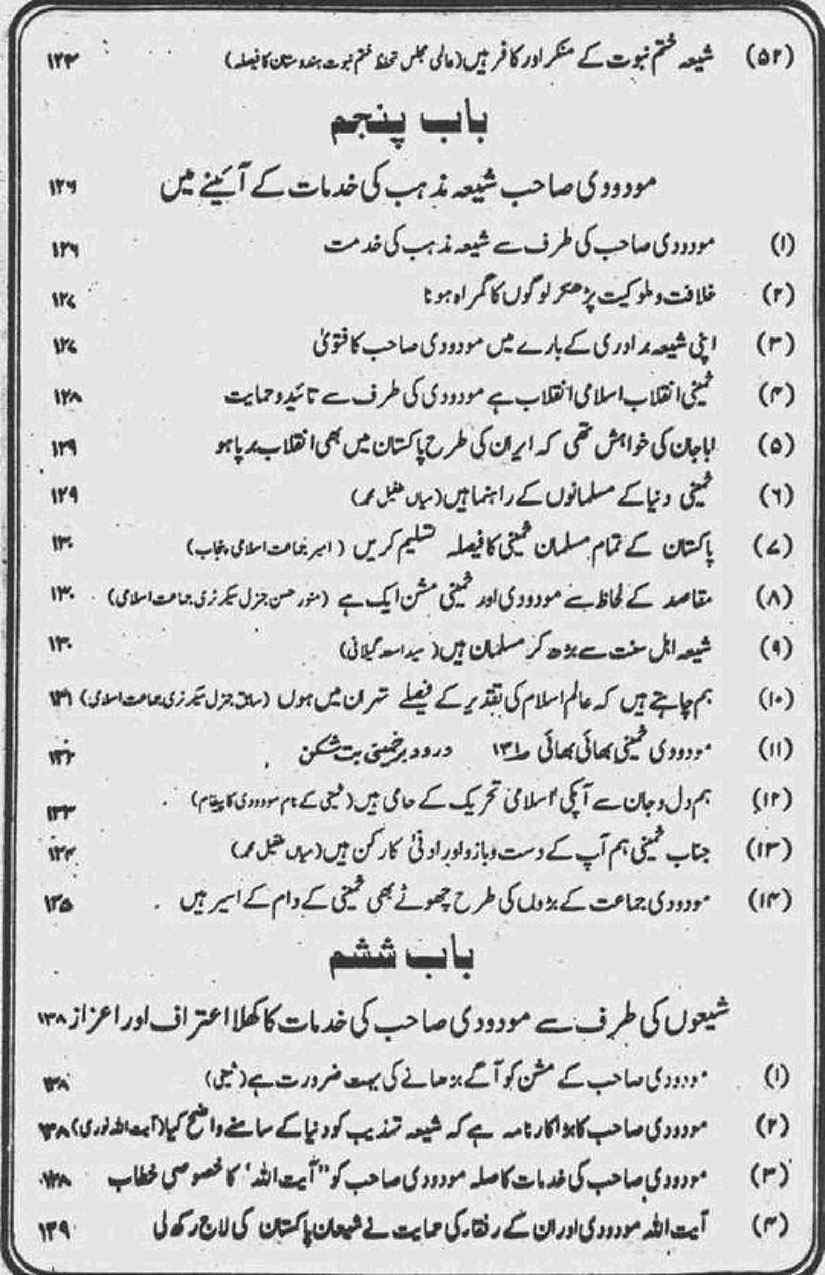 (۵۲) شیعہ ختم نبوت کے منکر اور کافر ہیں (عالمی مجلس تحفظ ختم نبوت ہندوستان کا فیصلہ) ۱۲۳
باب پنجم
مودودی صاحب شیعہ مذہب کی خدمات کے آئینے میں ۱۲۶
(۱) مودودی صاحب کی طرف سے شیعہ مذہب کی خدمت ۱۲۶
(۲) خلافت و ملوکیت پڑھکر لوگوں کا گمراہ ہونا ۱۲۷
(۳) اپنی شیعہ برادری کے بارے میں مودودی صاحب کا فتویٰ ۱۲۷
(۴) خمینی انقلاب اسلامی انقلاب ہے مودودی کی طرف سے تائید و حمایت ۱۲۸
(۵) اباجان کی خواہش تھی کہ ایران کی طرح پاکستان میں بھی انقلاب برپا ہو ۱۲۹
(۶) خمینی دنیا کے مسلمانوں کے راہنما ہیں (میاں طفیل محمد) ۱۲۹
(۷) پاکستان کے تمام مسلمان خمینی کا فیصلہ تسلیم کریں (امیر جماعت اسلامی پنجاب) ۱۳۰
(۸) مقاصد کے لحاظ سے مودودی اور خمینی مشن ایک ہے (منور حسن جنرل سیکرٹری جماعت اسلامی) ۱۳۰
(۹) شیعہ اہل سنت سے بڑھ کر مسلمان ہیں (سید اسعد گیلانی) ۱۳۰
(۱۰) ہم چاہتے ہیں کہ عالم اسلام کی تقدیر کے فیصلے تہران میں ہوں (سابق جنرل سیکرٹری جماعت اسلامی) ۱۳۱
(۱۱) مودودی خمینی بھائی بھائی ص۱۳۱ درود بر خمینی بت شکن ۱۳۲
(۱۲) ہم دل و جان سے آپکی اسلامی تحریک کے حامی ہیں (خمینی کے نام مودودی کا پیغام) ۱۳۳
(۱۳) جناب خمینی ہم آپ کے دست و بازو اور ادنیٰ کارکن ہیں (میاں طفیل محمد) ۱۳۴
(۱۴) مودودی جماعت کے بڑوں کی طرح چھوٹے بھی خمینی کے دام کے اسیر ہیں ۱۳۵
باب ششم
شیعوں کی طرف سے مودودی صاحب کی خدمات کا کھلا اعتراف اور اعزاز ۱۳۸
(۱) مودودی صاحب کے مشن کو آگے بڑھانے کی بہت ضرورت ہے ۱۳۸
(۲) مودودی صاحب کا بڑا کارنامہ ہے کہ شیعہ تہذیب کو دنیا کے سامنے واضح کیا (آیت اللہ نوری) ۱۳۸
(۳) مودودی صاحب کی خدمات کا صلہ مودودی صاحب کو "آیت اللہ" کا خصوصی خطاب ۱۳۸
(۴) آیت اللہ مودودی اور ان کے رفقاء کی حمایت نے شیعان پاکستان کی لاج رکھ لی ۱۳۹